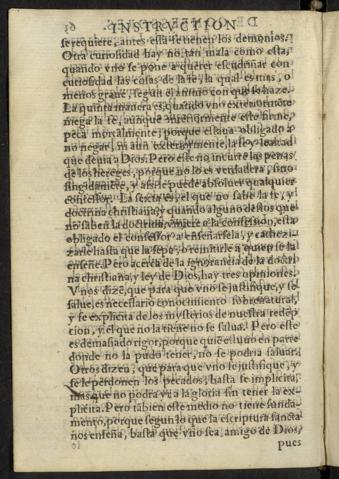 INSTRVCTION
se requiere, antes essa se tienen los demonios.
Otra curiosidad hay no tan mala como esta,
quando vno se pone a querer escudriñar con
curiosidad las cosas de la fe, la qual es mas, o
menos graue, segun el animo con que se haze.
La quinta manera es, quando vno exteriormẽte
niega la fe, aunque interiormente este firme,
peca mortalmente, porque estaua obligado a
no negar, ni aun exteriormente, la fe y lealtad
que deuia a Dios. Pero este no incurre las penas
de los hereges, porque no lo es verdadera, sino
fingidamẽte, y assi le puede absoluer qualquier
confessor. La sexta es, el que no sabe la fe, y
doctrina christiana, y quando alguno destos que
no saben la doctrina, viniere a la confession, esta
obligado el confessor a enseñarsela, y cathezi-
zarle hasta que la sepa, o remitirle a quien se la
enseñe. Pero acerca de la ignorancia de la doctri
na christiana, y ley de Dios, hay tres opiniones.
Vnos dizẽ, que para que vno se justifique, y se
salue, es necessario conocimiento sobrenatural,
y fe explicita de los mysterios de nuestra redẽp
cion, y el que no la tiene no se salua. Pero este
es demasiado rigor, porque quiẽ estuuo en parte
donde no la pudo tener, no se podria saluar.
Otros dizen, que para que vno se justifique, y
se le perdonen los pecados, basta fe implicita,
mas que no podra yr a la gloria sin tener la ex-
plicita. Pero tãbien este medio no tiene funda-
mento, porque segun lo que la escriptura sancta
nos enseña, basta que vno sea amigo de Dios,
pues